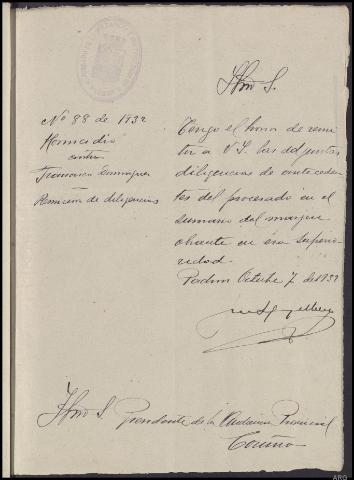 Iltmo S.
Nº 88 de 1932
Homicidio
contra
Francisco Domínguez
Remisión de diligencias
Tengo el honor de remi
tir a V.S. las adjuntas
diligencias de anteceden
tes del procesado en el
sumario del margen
obrante en esa Superio
ridad.
Padron Octubre 7 de 1932
Iltmo S. Presidente de la Audiencia Provincial
Coruña
ARG